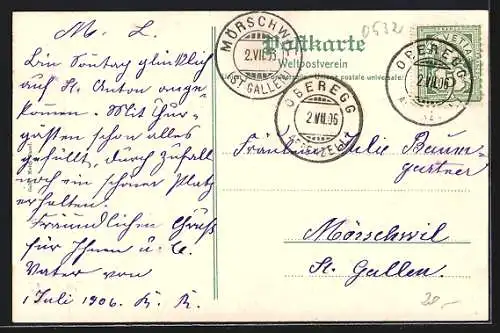 M. L.
Bin Sontag glücklich
auf St. Anton ange-
kommen. Mit Kur-
gästen schon alles
gefüllt, durch Zufall
noch ein schöner Platz
erhalten.
Freundlichen Gruß
für Ihnen u. L.
Vater von
1 Juli 1906. K. R.
Postkarte
Weltpostverein
Union postale universelle
MÖRSCHWIL
2.VII.06
(ST. GALLEN)
OBEREGG
2.VII.06
(APPENZELL)
OBEREGG
2.VII.06
HELVETIA
5
0532
Fräulein Julie Baum-
gartner
Mörschwil
St. Gallen.
20,-